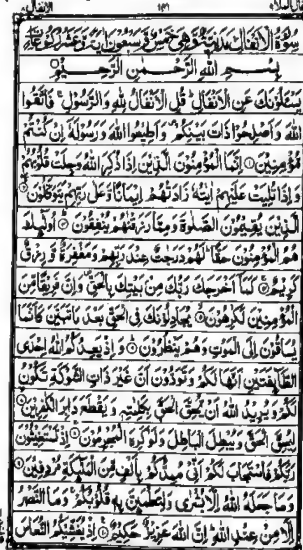 قال الملأ ٩
الانفال ٨
سُوْرَةُ الْاَنْفَالِ مَدَنِيَّةٌ وَّهِيَ خَمْسٌ وَّسَبْعُوْنَ اٰيَةً وَّعَشْرُ رُكُوْعَاتٍ
بِسْمِ اللّٰهِ الرَّحْمٰنِ الرَّحِيْمِ
يَسْـَٔلُوْنَكَ عَنِ الْاَنْفَالِ ؕ قُلِ الْاَنْفَالُ لِلّٰهِ وَالرَّسُوْلِ ۚ فَاتَّقُوا
اللّٰهَ وَاَصْلِحُوْا ذَاتَ بَيْنِكُمْ ۪ وَاَطِيْعُوا اللّٰهَ وَرَسُوْلَهٗۤ اِنْ كُنْتُمْ
مُّؤْمِنِيْنَ ۝ اِنَّمَا الْمُؤْمِنُوْنَ الَّذِيْنَ اِذَا ذُكِرَ اللّٰهُ وَجِلَتْ قُلُوْبُهُمْ
وَاِذَا تُلِيَتْ عَلَيْهِمْ اٰيٰتُهٗ زَادَتْهُمْ اِيْمَانًا وَّعَلٰى رَبِّهِمْ يَتَوَكَّلُوْنَ ۝
الَّذِيْنَ يُقِيْمُوْنَ الصَّلٰوةَ وَمِمَّا رَزَقْنٰهُمْ يُنْفِقُوْنَ ۝ اُولٰٓئِكَ
هُمُ الْمُؤْمِنُوْنَ حَقًّا ؕ لَهُمْ دَرَجٰتٌ عِنْدَ رَبِّهِمْ وَمَغْفِرَةٌ وَّرِزْقٌ
كَرِيْمٌ ۝ كَمَاۤ اَخْرَجَكَ رَبُّكَ مِنْۢ بَيْتِكَ بِالْحَقِّ ۪ وَاِنَّ فَرِيْقًا مِّنَ
الْمُؤْمِنِيْنَ لَكٰرِهُوْنَ ۝ يُجَادِلُوْنَكَ فِى الْحَقِّ بَعْدَ مَا تَبَيَّنَ كَاَنَّمَا
يُسَاقُوْنَ اِلَى الْمَوْتِ وَهُمْ يَنْظُرُوْنَ ۝ وَاِذْ يَعِدُكُمُ اللّٰهُ اِحْدَى
الطَّآئِفَتَيْنِ اَنَّهَا لَكُمْ وَتَوَدُّوْنَ اَنَّ غَيْرَ ذَاتِ الشَّوْكَةِ تَكُوْنُ
لَكُمْ وَيُرِيْدُ اللّٰهُ اَنْ يُّحِقَّ الْحَقَّ بِكَلِمٰتِهٖ وَيَقْطَعَ دَابِرَ الْكٰفِرِيْنَ ۝
لِيُحِقَّ الْحَقَّ وَيُبْطِلَ الْبَاطِلَ وَلَوْ كَرِهَ الْمُجْرِمُوْنَ ۝ اِذْ تَسْتَغِيْثُوْنَ
رَبَّكُمْ فَاسْتَجَابَ لَكُمْ اَنِّىْ مُمِدُّكُمْ بِاَلْفٍ مِّنَ الْمَلٰٓئِكَةِ مُرْدِفِيْنَ ۝
وَمَا جَعَلَهُ اللّٰهُ اِلَّا بُشْرٰى وَلِتَطْمَئِنَّ بِهٖ قُلُوْبُكُمْ ؕ وَمَا النَّصْرُ
اِلَّا مِنْ عِنْدِ اللّٰهِ ؕ اِنَّ اللّٰهَ عَزِيْزٌ حَكِيْمٌ ۝ اِذْ يُغَشِّيْكُمُ النُّعَاسَ